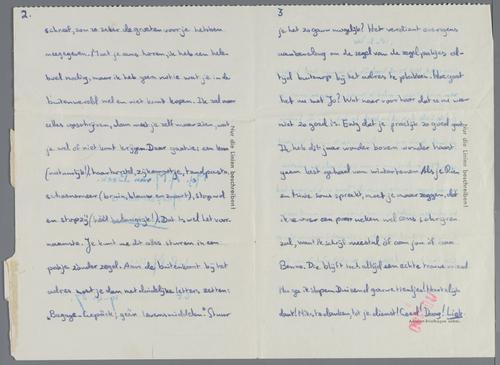 2.
schreef, zou ze zeker de groeten voor je hebben
meegegeven. Moet je eens horen, ik heb een hele-
boel nodig, maar ik heb geen notie wat je in de
buitenwereld wel en niet kunt kopen. Ik zal maar
alles opschrijven, dan moet je zelf maar zien, wat
je wel of niet kunt krijgen. Daar gaat ie: een kam
(natuurlijk!), haarborstel, tandpasta,
schoensmeer (bruin, blauw en zwart), stopwol
en stopzij (héél belangrijk!). Dat is wel het voor-
naamste. Je kunt me dit alles sturen in een
pakje zònder zegel. Aan de buitenkant bij het
adres moet je dan met duidelijke letters zetten:
"Bagage-Gepäck; geen levensmiddelen." Stuur
Nur die Linien beschreiben!
3
je het zo gauw mogelijk? Het verdient overigens
aanbeveling om de zegel van de zegelpakjes al-
tijd buitenop bij het adres te plakken. Hoe gaat
het met Jo? Wat naar voor haar dat ze nu weer
niet zo goed is. Enig dat je practijk zo goed gaat.
Ik heb dit jaar wonder boven wonder haast
geen last gehad van wintertenen. Als je Dien
en tante sons spreekt, moet je maar zeggen, dat
ik ze over een paar weken wel eens schrijven
zal, want ik schrijf meestal òf aan jou òf aan
Benno. Die blijft toch altijd een echte trouwe vriend
Nu ga ik slapen. Duizend gauwe Hartelijk
dank! Niks te danken, tot je dienst! Goed! Daag! Liek.
Nur die Linien beschreiben!